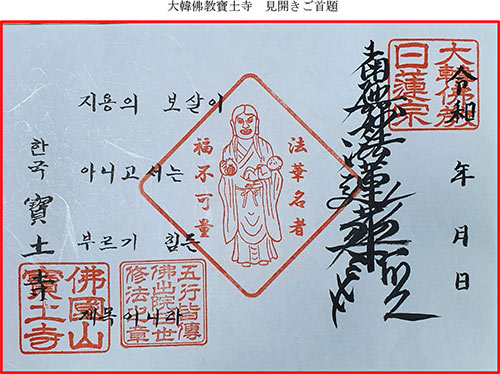 大韓佛教寶土寺　見開きご首題
大韓佛教
日蓮宗
令和 年 月 日
南無妙法蓮華経
法華名者
福不可量
지용의 보살이
아니고서는
부르기 힘든
제목이니라
한국 寶土寺
五行皆傳
修法印章
佛國山
寶土寺